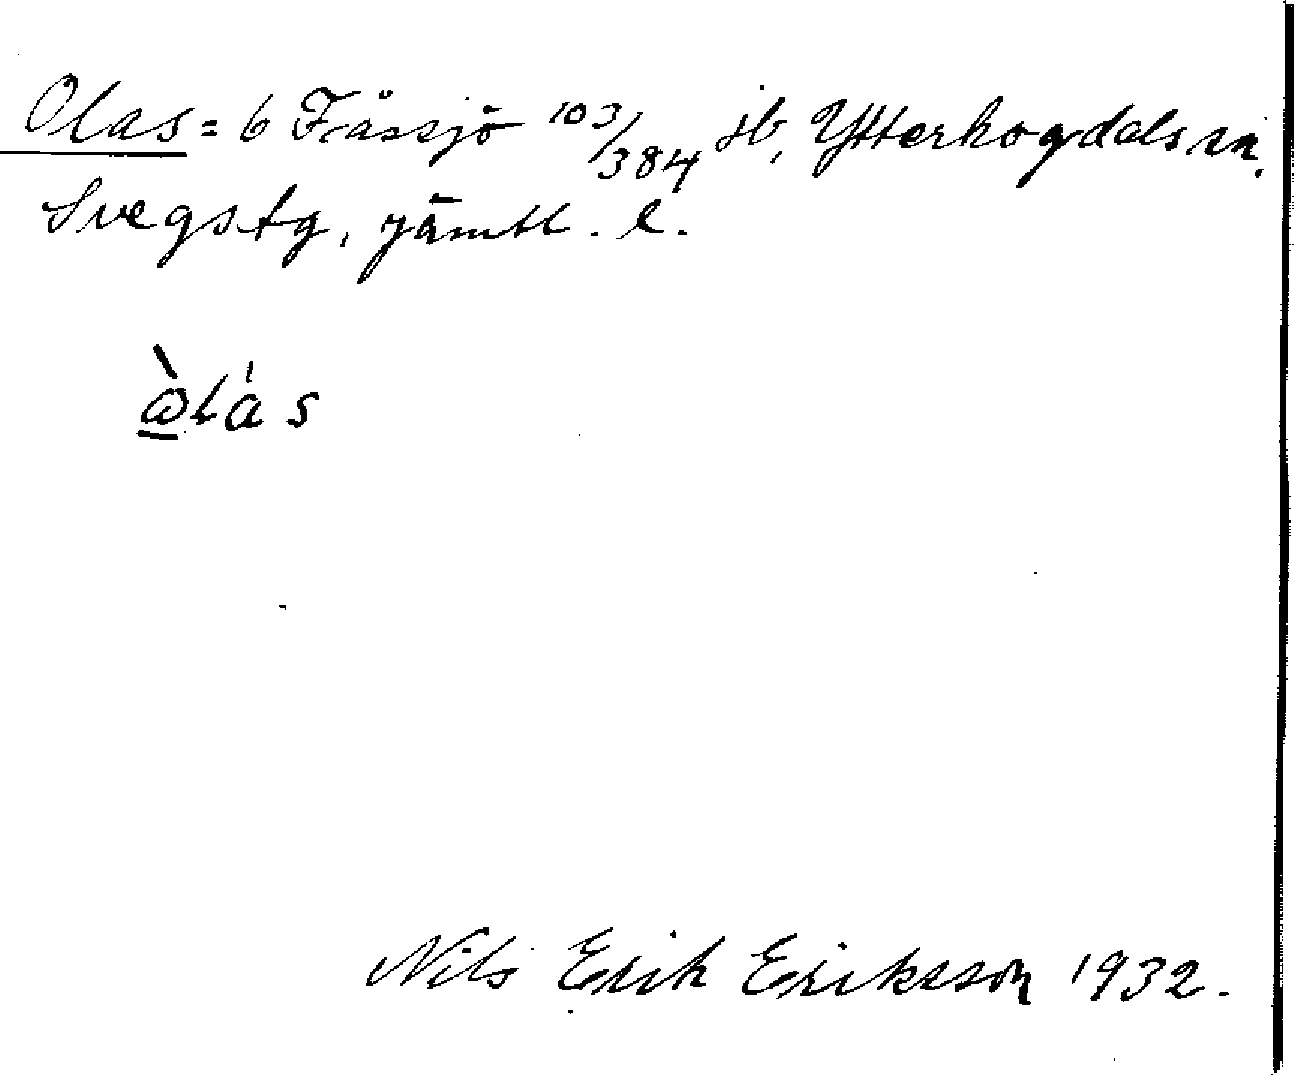 Olas = 6 Fåssjö 103/384 jb, Ytterhogdals sn.
Svegs tg, Jämtl. l.
ὼlàs
Nils Erik Eriksson 1932.